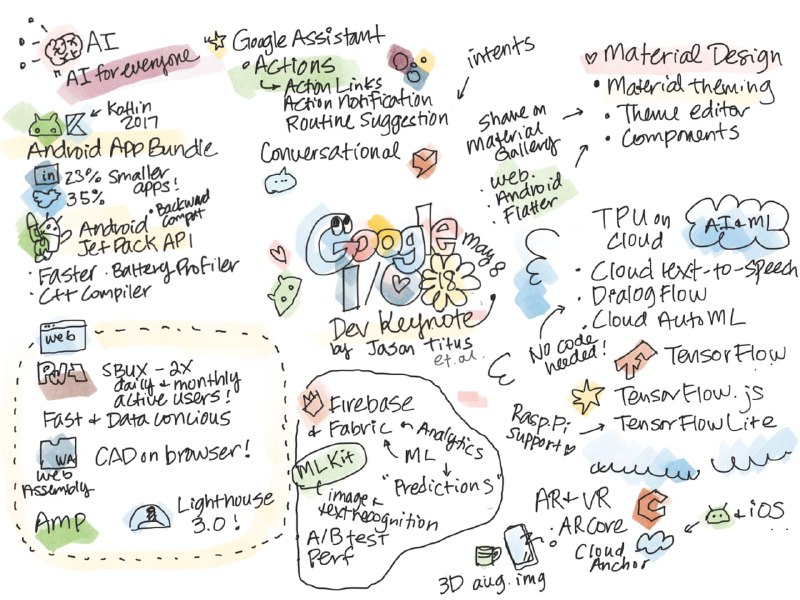 AI
"AI for everyone"
Kotlin
2017
Android App Bundle
in 23% smaller
apps!
35%
Android
JetPack API
• Backward
compat
• Faster • Battery Profiler
• C++ Compiler
Google Assistant
• Actions
Action Links
Action Notification
Routine Suggestion
Conversational
intents
Material Design
• Material theming
• Theme editor
• Components
Share on
Material
Gallery
• web
• Android
Flutter
Google
I/O 18
May 8
Dev Keynote
by Jason Titus
et. al.
TPU on
Cloud
AI & ML
• Cloud text-to-speech
• DialogFlow
• Cloud AutoML
No code
needed!
TensorFlow
TensorFlow.js
Rasp. Pi
support
TensorFlow Lite
web
PWA
SBUX - 2X
daily & monthly
active users!
Fast & Data concious
WA
Web
Assembly
CAD on browser!
AMP
Lighthouse
3.0!
Firebase
& Fabric
Analytics
ML
"Predictions"
ML Kit
image &
text recognition
A/B test
Perf
AR & VR
• ARCore
Cloud
Anchor
& iOS
3D aug. img